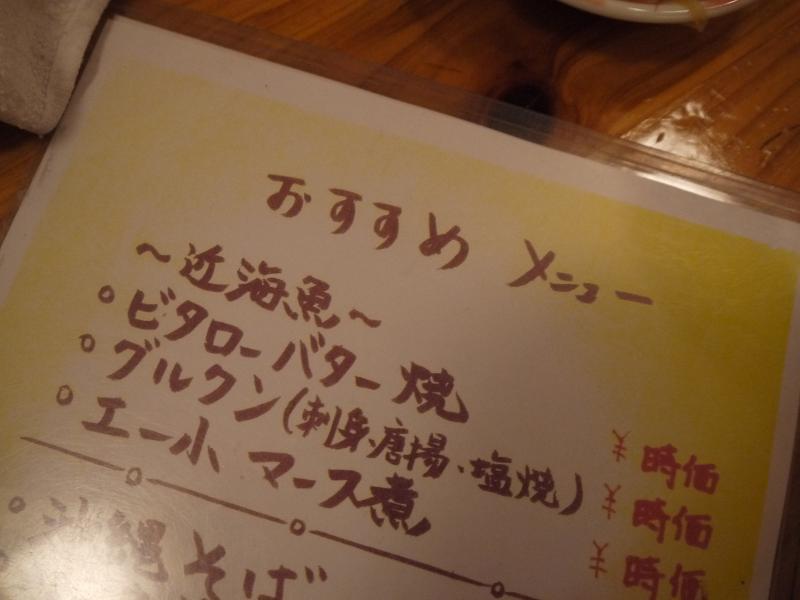 おすすめ メニュー
～近海魚～
。ビタローバター焼 ¥時価
。グルクン(刺身、唐揚・塩焼) ¥時価
。エー小 マース煮 ¥時価
。沖縄そば